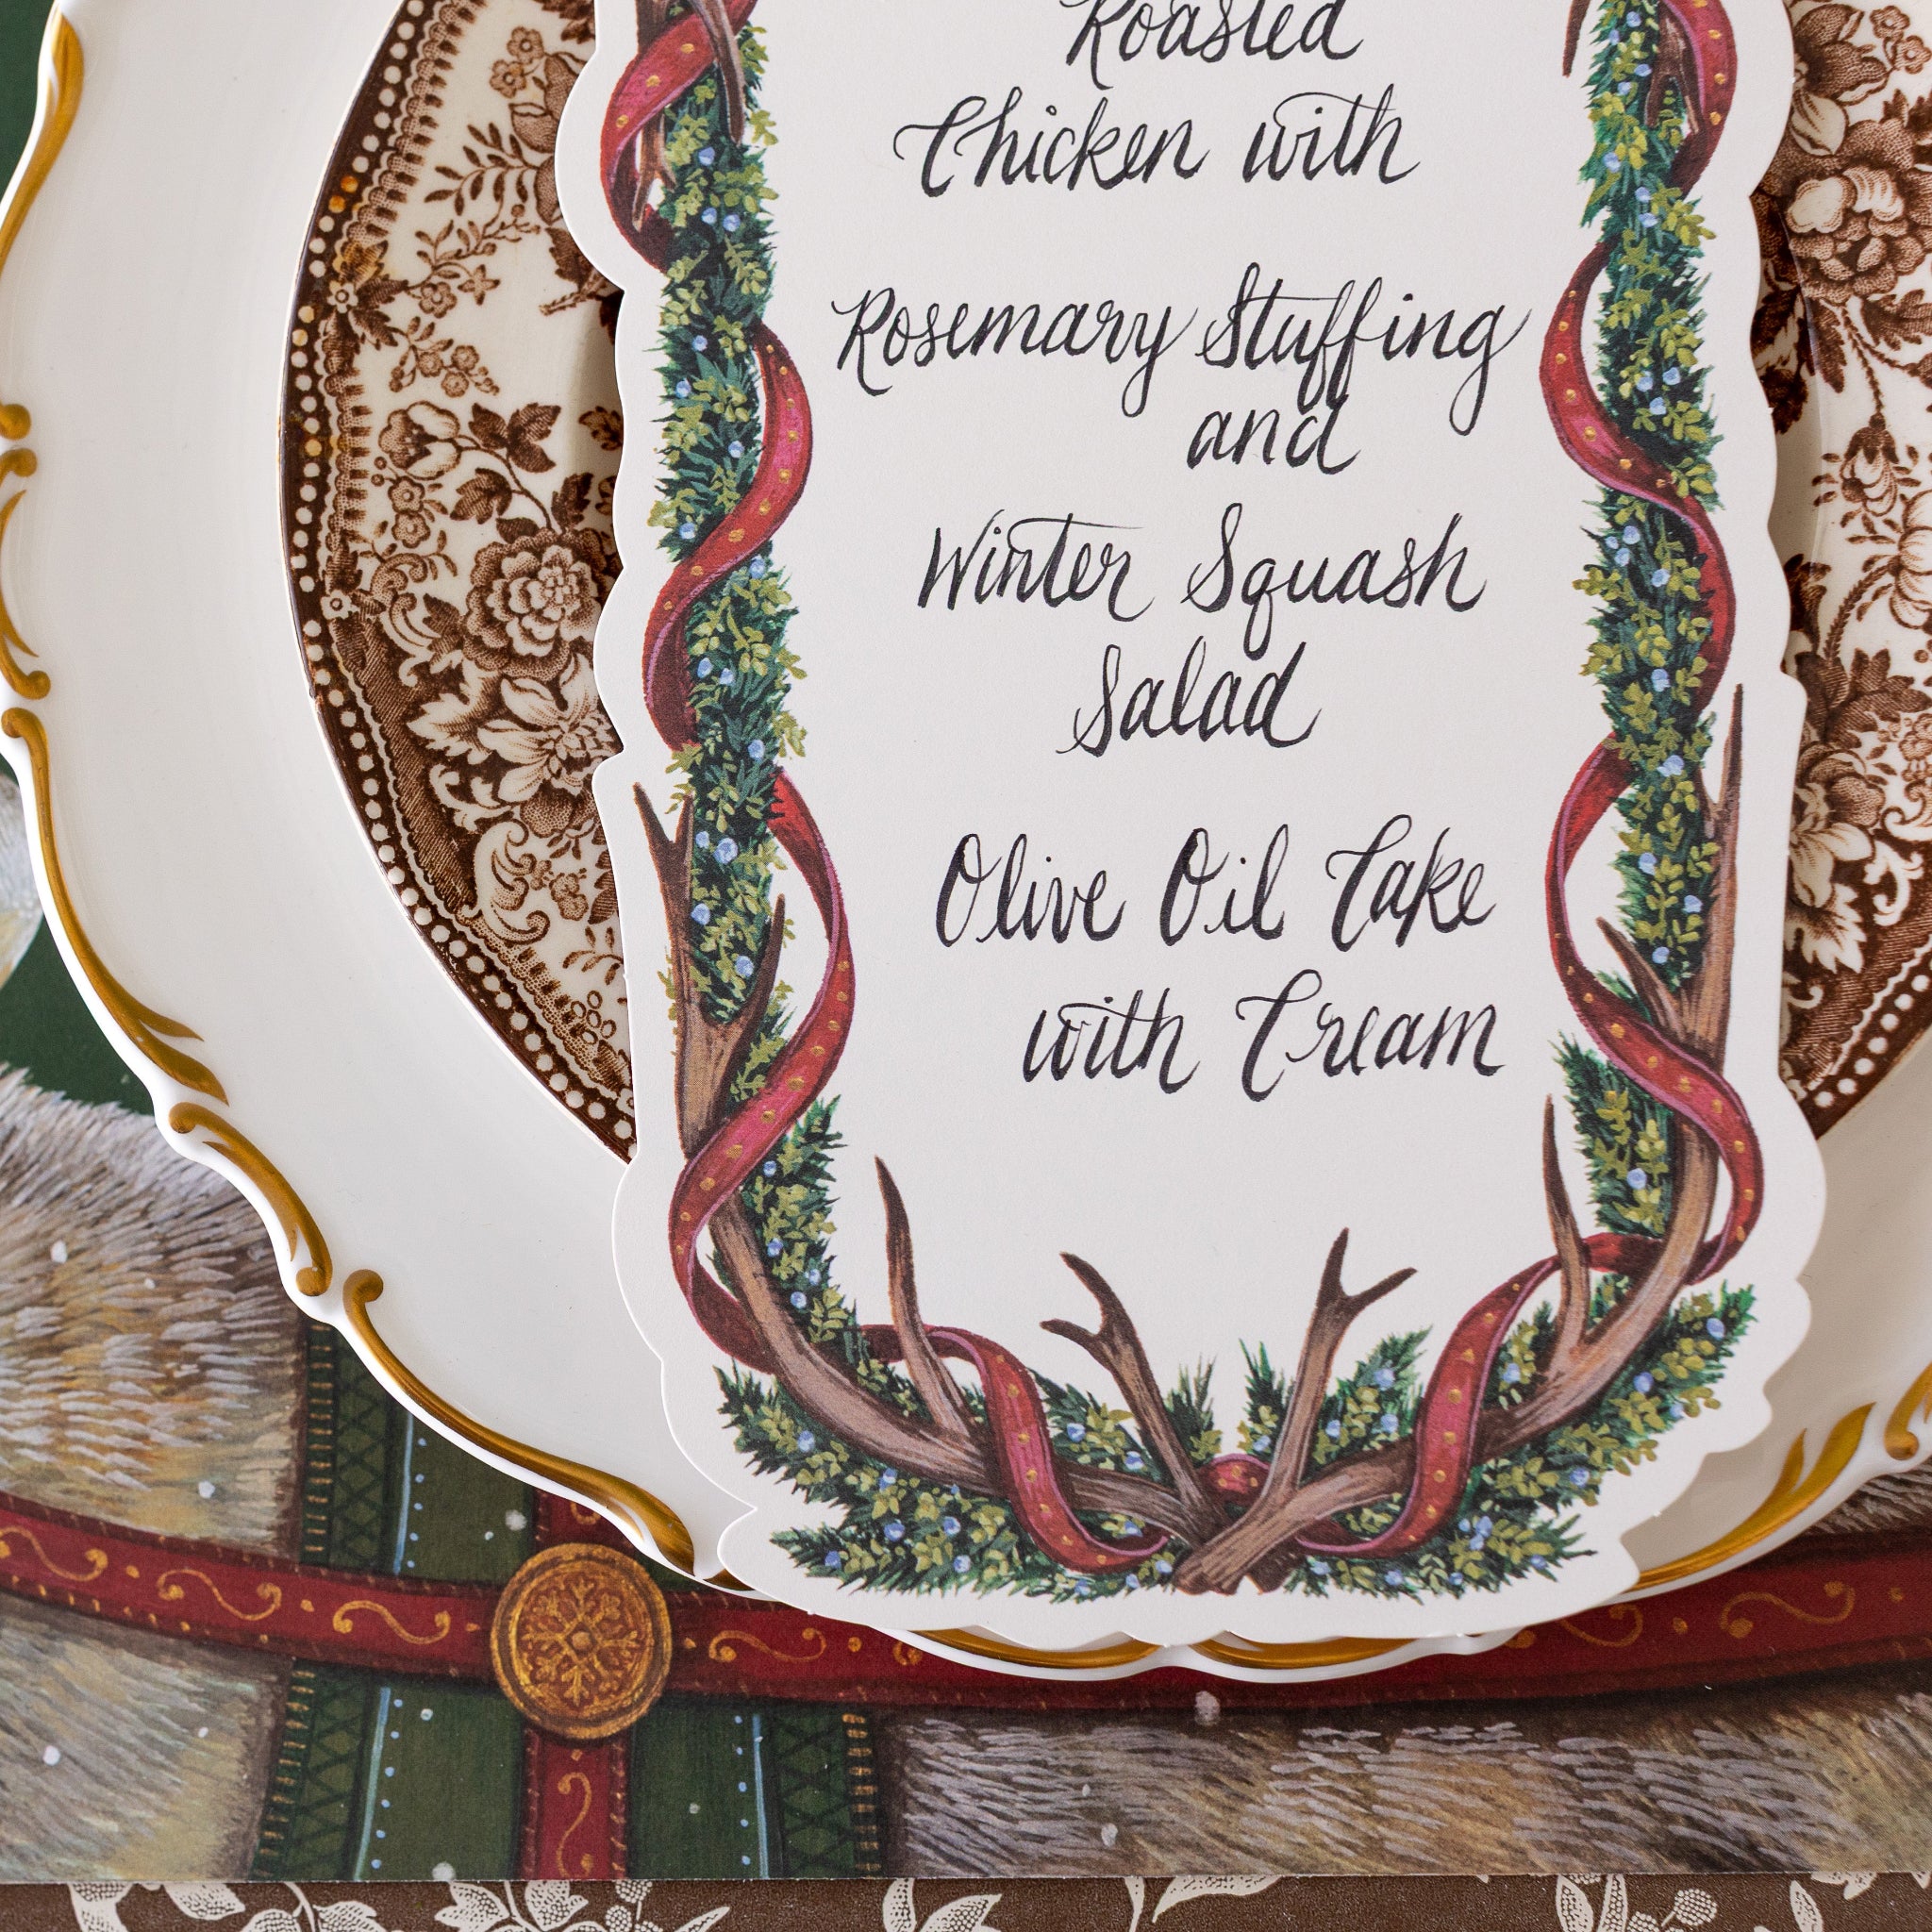 Roasted
Chicken with
Rosemary Stuffing
and
Winter Squash
Salad
Olive Oil Cake
with Cream